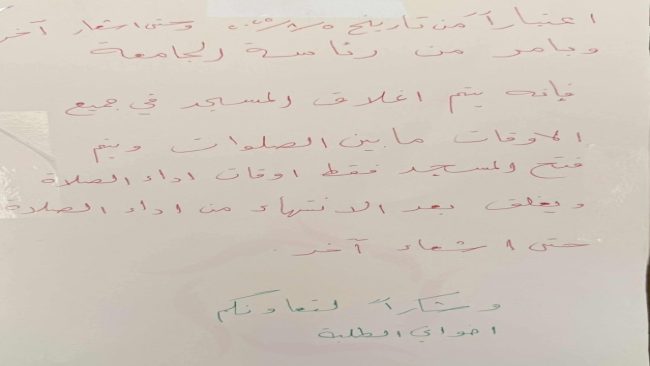 اعتباراً من تاريخ ٢٠٢٥/٨/٥ وحتى اشعار آخر
وبامر من رئاسة الجامعة
فإنه يتم اغلاق المسجد في جميع
الاوقات ما بين الصلوات ويتم
فتح المسجد فقط اوقات اداء الصلاة
ويغلق بعد الانتهاء من اداء الصلاة
حتى اشعار آخر.
وشكراً لتعاونكم
اخواني الطلبة